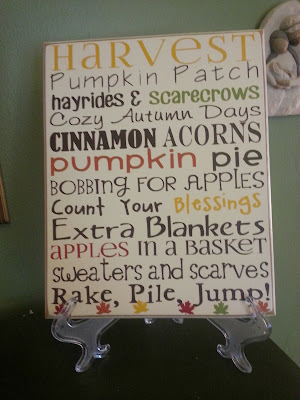 HARVEST
Pumpkin Patch
hayrides & scarecrows
Cozy Autumn Days
CINNAMON ACORNS
pumpkin pie
BOBBING FOR APPLES
Count Your Blessings
Extra Blankets
APPLES IN A BASKET
sweaters and scarves
Rake, Pile, Jump!